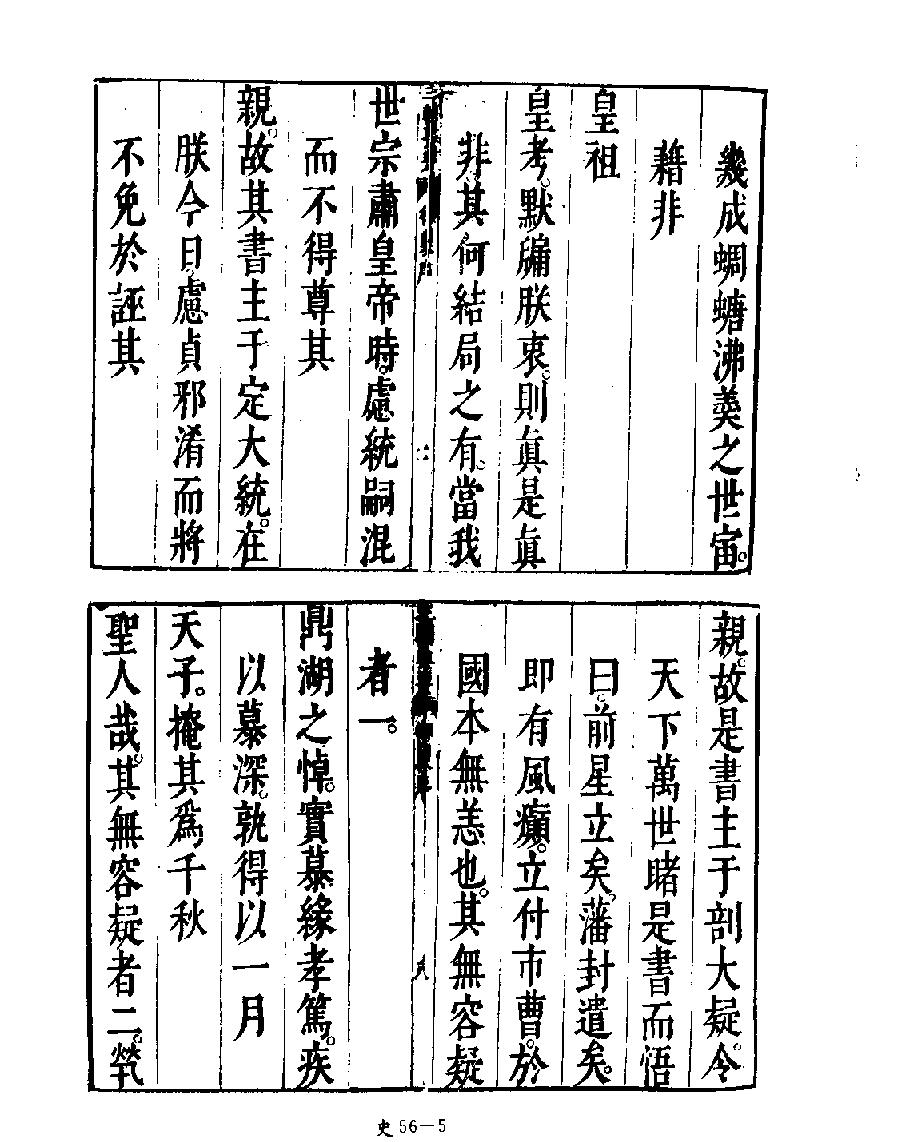 幾成蜩螗沸羹之世宙。
藉非
皇祖
皇考。默牖朕衷。則眞是眞
非。其何結局之有。當我
世宗肅皇帝時。慮統嗣混
而不得尊其
親。故其書主于定大統。在
朕今日。慮貞邪淆而將
不免於誣其
親。故是書主于剖大疑。令
天下萬世睹是書而悟
曰。前星立矣。藩封遣矣。
即有風癲。立付市曹。於
國本無恙也。其無容疑
者一。
鼎湖之悼。實慕緣孝篤。疾
以慕深。孰得以一月
天子。掩其爲千秋
聖人哉。其無容疑者二。煢
史 56—5